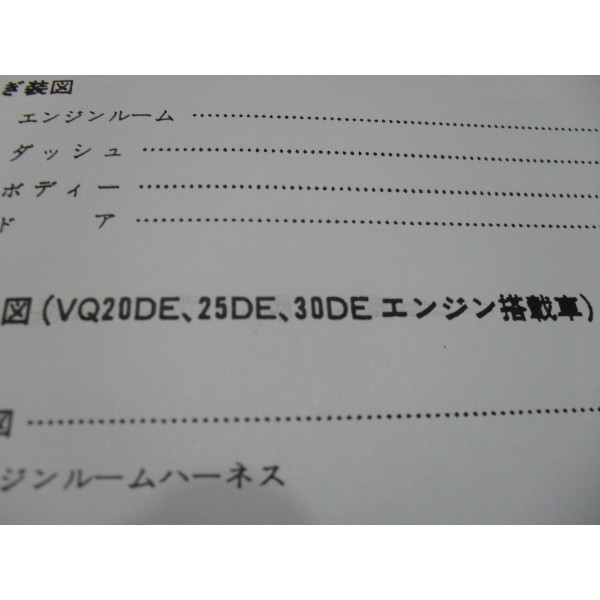 ぎ装図
エンジンルーム
ダッシュ
ボディー
ドア
図(VQ20DE、25DE、30DEエンジン搭載車)
図
ジンルームハーネス